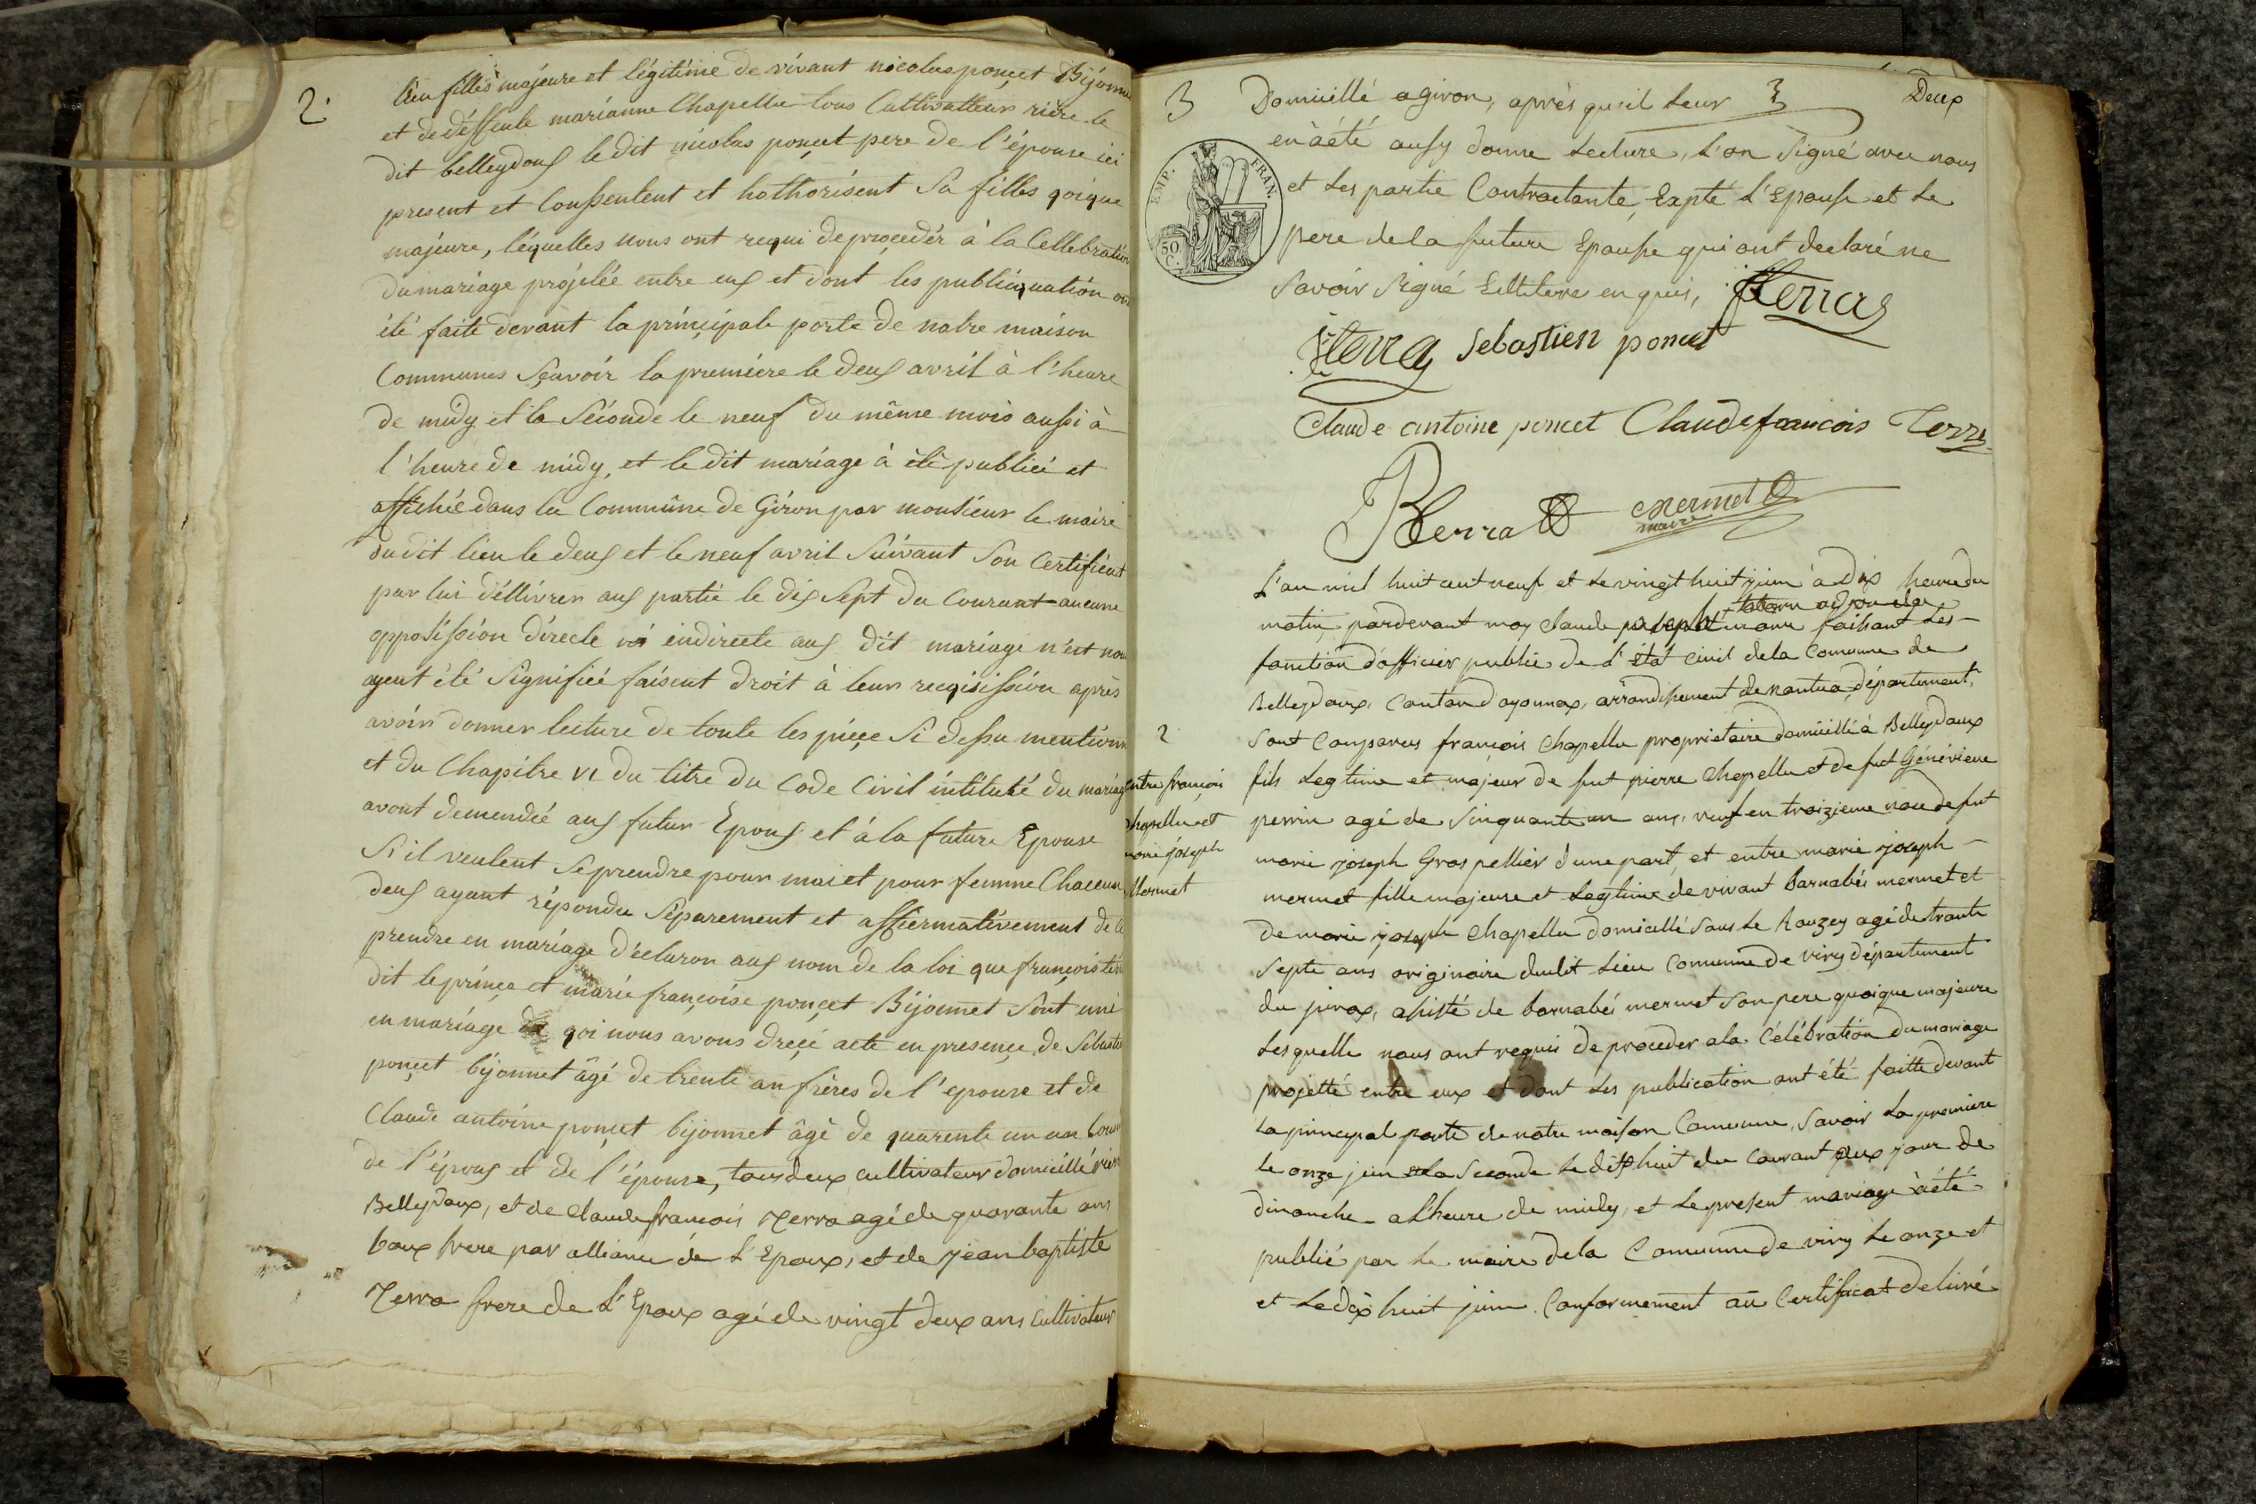 2.
lieu filles majeure et légitime de vivant nicolas ponçet Bijonne
et de déffeule marianne Chapellu tous Cultivatteur rière le
dit belleydoux le dit nicolas ponçet pere de l'épouse ici
present et Conssentent et hothorisent sa filles qoique
majeure, léquelles nous ont requi de proceder à la Cellebration
du mariage projétée entre eux et dont les publicquation on
été faite devant la prinçipale porte de notre maison
Communes Sçavoir la premiere le deux avril à l'heure
de midy et la Séconde le neuf du même mois aussi à
l'heure de midy, et le dit mariage à été publiéé et
affichéé dans la Commune de Giron par monsieur le maire
du dit lieu le deux et le neuf avril Suivant Son Certificat
par lui déllivrer aux partie le dix Sept du Courant aucune
opposission directe ni indirecte aux dit mariage n'est nou
ayent été Signifiéé faisent droit à leur reqisission après
avoir donner lecture de toute les pièçe Si dessu mentionn
et du Chapitre VI du titre du Code Civil intitulé du mariage
avont demendéé aux futur Epoux et à la future Epouse
S'il veulent Se prendre pour mari et pour femme Chaccun
deux ayant répondu Séparement et affiermativement de le
prendre en mariage Déclaron aux nom de la loi que françois ter
dit le prinçe et marie françoise ponçet Bijonnet Sont uni
en mariage de qoi nous avons dreçé acte en presençe de Sebasti
ponçet bijonnet âgé de trente an frères de l'epouse et de
Claude antoine ponçet bijonnet âgé de quarente un an Cousin
de l'époux et de l'épouse, tous deux cultivateur domicillé rière
Belleydoux, et de Claude francois Terra agé de quarante ans
baux frere par alliance de L'Epoux, et de jean baptiste
Terra frere de L'Epoux agé de vingt deux ans Cultivateur
3
Deux
Domicillé agiron, aprés qu'il leur
en à été aussy donne Lecture, L'on Signé avec nous
et Les partie Contractante, Expté L'Epouse et Le
pere de la future Epouse qui ont declaré ne
Savoir Signé de ce enquis,
EMP. FRAN.
50 C.
Sebastien poncet
Claude antoine poncet Claude francois Terra
mermet
maire
L'an mil huit cent neuf et Le vingt huit juin à dix heure du
matin pardevant moy Claude joseph maire faisant Les
fonction d'officier public de L'état Civil de la Comune de
Belleydoux, Canton d'oyonnax, arrondissement de nantua, département,
2
Entre françois
Chapellu et
marie joseph
Mermet
Sont Comparus françois Chapellu proprietaire domicillié à Belleydoux
fils Legtime et majeur de fut pierre Chapellu et de fut Généviève
perrin agé de Sinquante un ans, veuf en troizieme noce de fut
marie joseph Gros pellier d'une part, et entre marie joseph
mermet fille majeure et Legtime de vivant barnabéi mermet et
de marie joseph Chapellu domicillé Sous Le Rauzey agé de trante
Septe ans originaire dudit Lieu Comunne de viry département
du jurax, assisté de barnabéi mermet Son pere quoique majeure
Lesquelle nous ont requis de proceder a la Célébration du mariage
projetté entre eux et dont Les publication ont été faitte devant
La principal porte de notre maison Comunne, Savoir La premiere
le onze juin et la Seconde Le dix huit du Courant deux jour de
dimanche a L'heure de midy, et Le present mariage à été
publié par Le maire de la Comunne de viry Le onze et
et Le dix huit juin Conformement au Certificat delivré